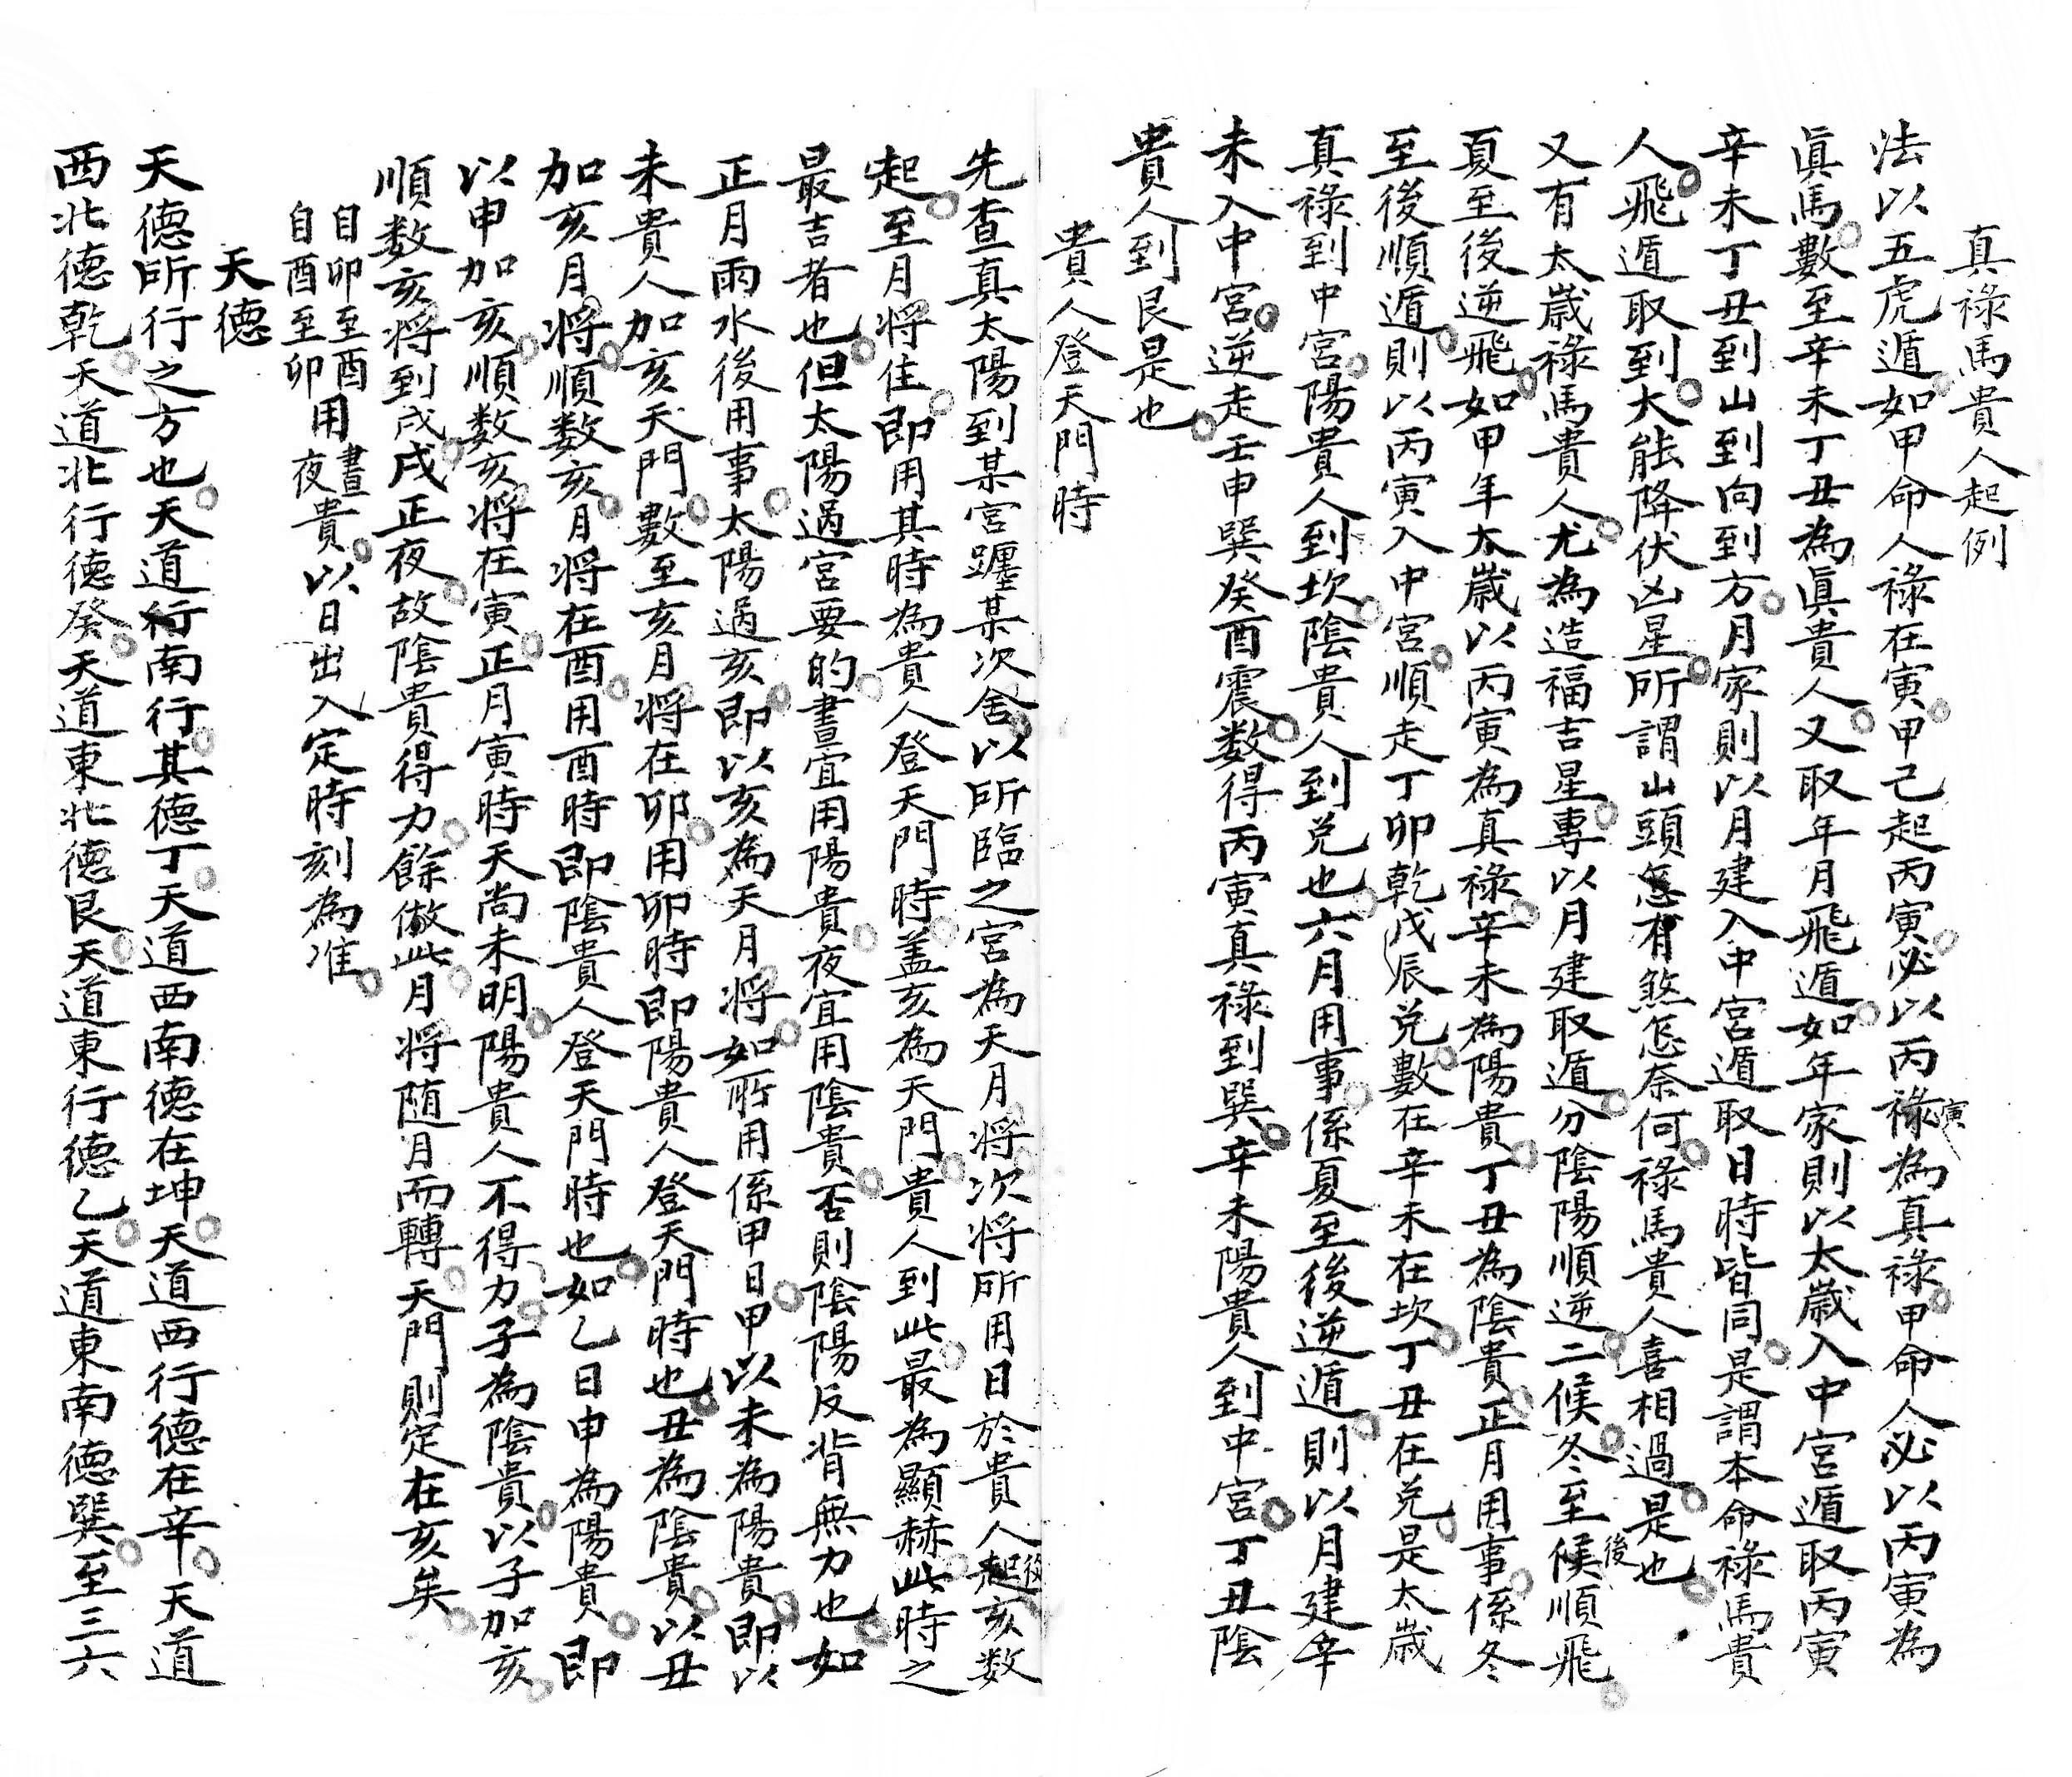 真祿馬貴人起例
法以五虎遁如甲命人祿在寅甲己起丙寅必以丙寅祿為真祿甲命人必以丙寅為
眞馬數至辛未丁丑為眞貴人又取年月飛遁如年家則以太歲入中宮遁取丙寅
辛未丁丑到山到向到方月家則以月建入中宮遁取日時皆同是謂本命祿馬貴
人飛遁取到大能降伏凶星所謂出頭怎有煞怎奈何祿馬貴人喜相過是也
又有太歲祿馬貴人尤為造福吉星專以月建取遁分陰陽順逆二候冬至候後順飛
夏至後逆飛如甲年太歲以丙寅為真祿辛未為陽貴丁丑為陰貴正月用事係冬
至後順遁則以丙寅入中宮順走丁卯乾戊辰兌數在辛未在坎丁丑在兌是太歲
真祿到中宮陽貴人到坎陰貴人到兌也六月用事係夏至後逆遁則以月建辛
未入中宮逆走壬申巽癸酉震数得丙寅真祿到巽辛未陽貴人到中宮丁丑陰
貴人到艮是也
貴人登天門時
先查真太陽到某宮躔某次舍以所臨之宮為天月将次将所用日於貴人後起亥数
起至月将住即用其時為貴人登天門時盖亥為天門貴人到此最為顯赫此時之
最吉者也但太陽過宮要的晝宜用陽貴夜宜用陰貴否則陰陽反背無力也如
正月雨水後用事太陽過亥即以亥為天月将如所用係甲日甲以未為陽貴即以
未貴人加亥天門數至亥月将在卯用卯時即陽貴人登天門時也丑為陰貴以丑
加亥月将順数亥月将在酉用酉時即陰貴人登天門時也如乙日申為陽貴即
以申加亥順数亥将在寅正月寅時天尚未明陽貴人不得力子為陰貴以子加亥
順数亥将到戌戌正夜故陰貴得力餘倣此月将随月而轉天門則定在亥矣
自卯至酉自酉至卯用晝夜貴以日出入定時刻為准
天德
天德所行之方也天道行南行其德丁天道西南德在坤天道西行德在辛天道
西北德乾天道北行德癸天道東北德艮天道東行德乙天道東南德巽至三六